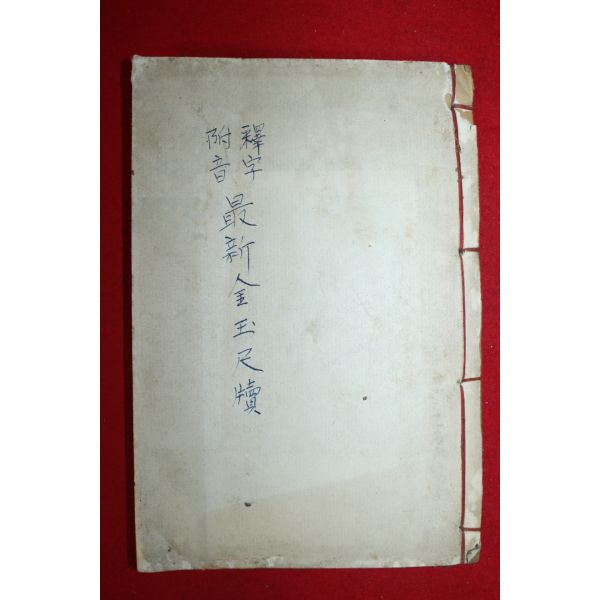 釋字
附音
最新金玉尺牘